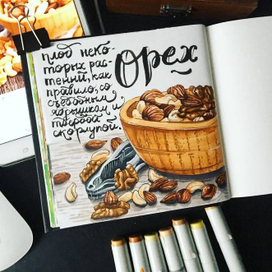 плод неко-
торых рас-
тений, как
правило, со
съедобным
ядрышком и
твердой
скорлупой.
Орех